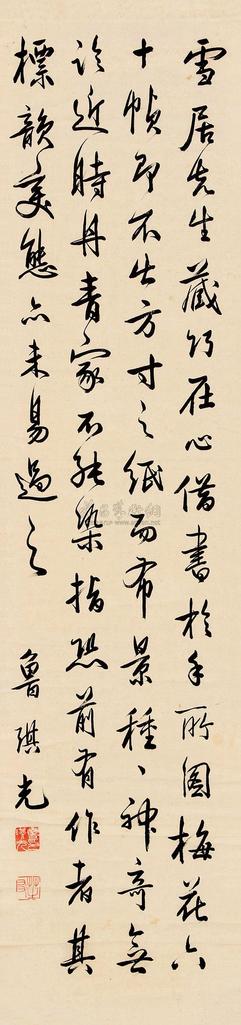 雪居先生藏巧在心借書於手所圖梅花六
十幀即不出方寸之紙而布景種、神奇無
論近時丹青家不能染指恐前有作者其
標韻美態亦未易過之
魯琪光